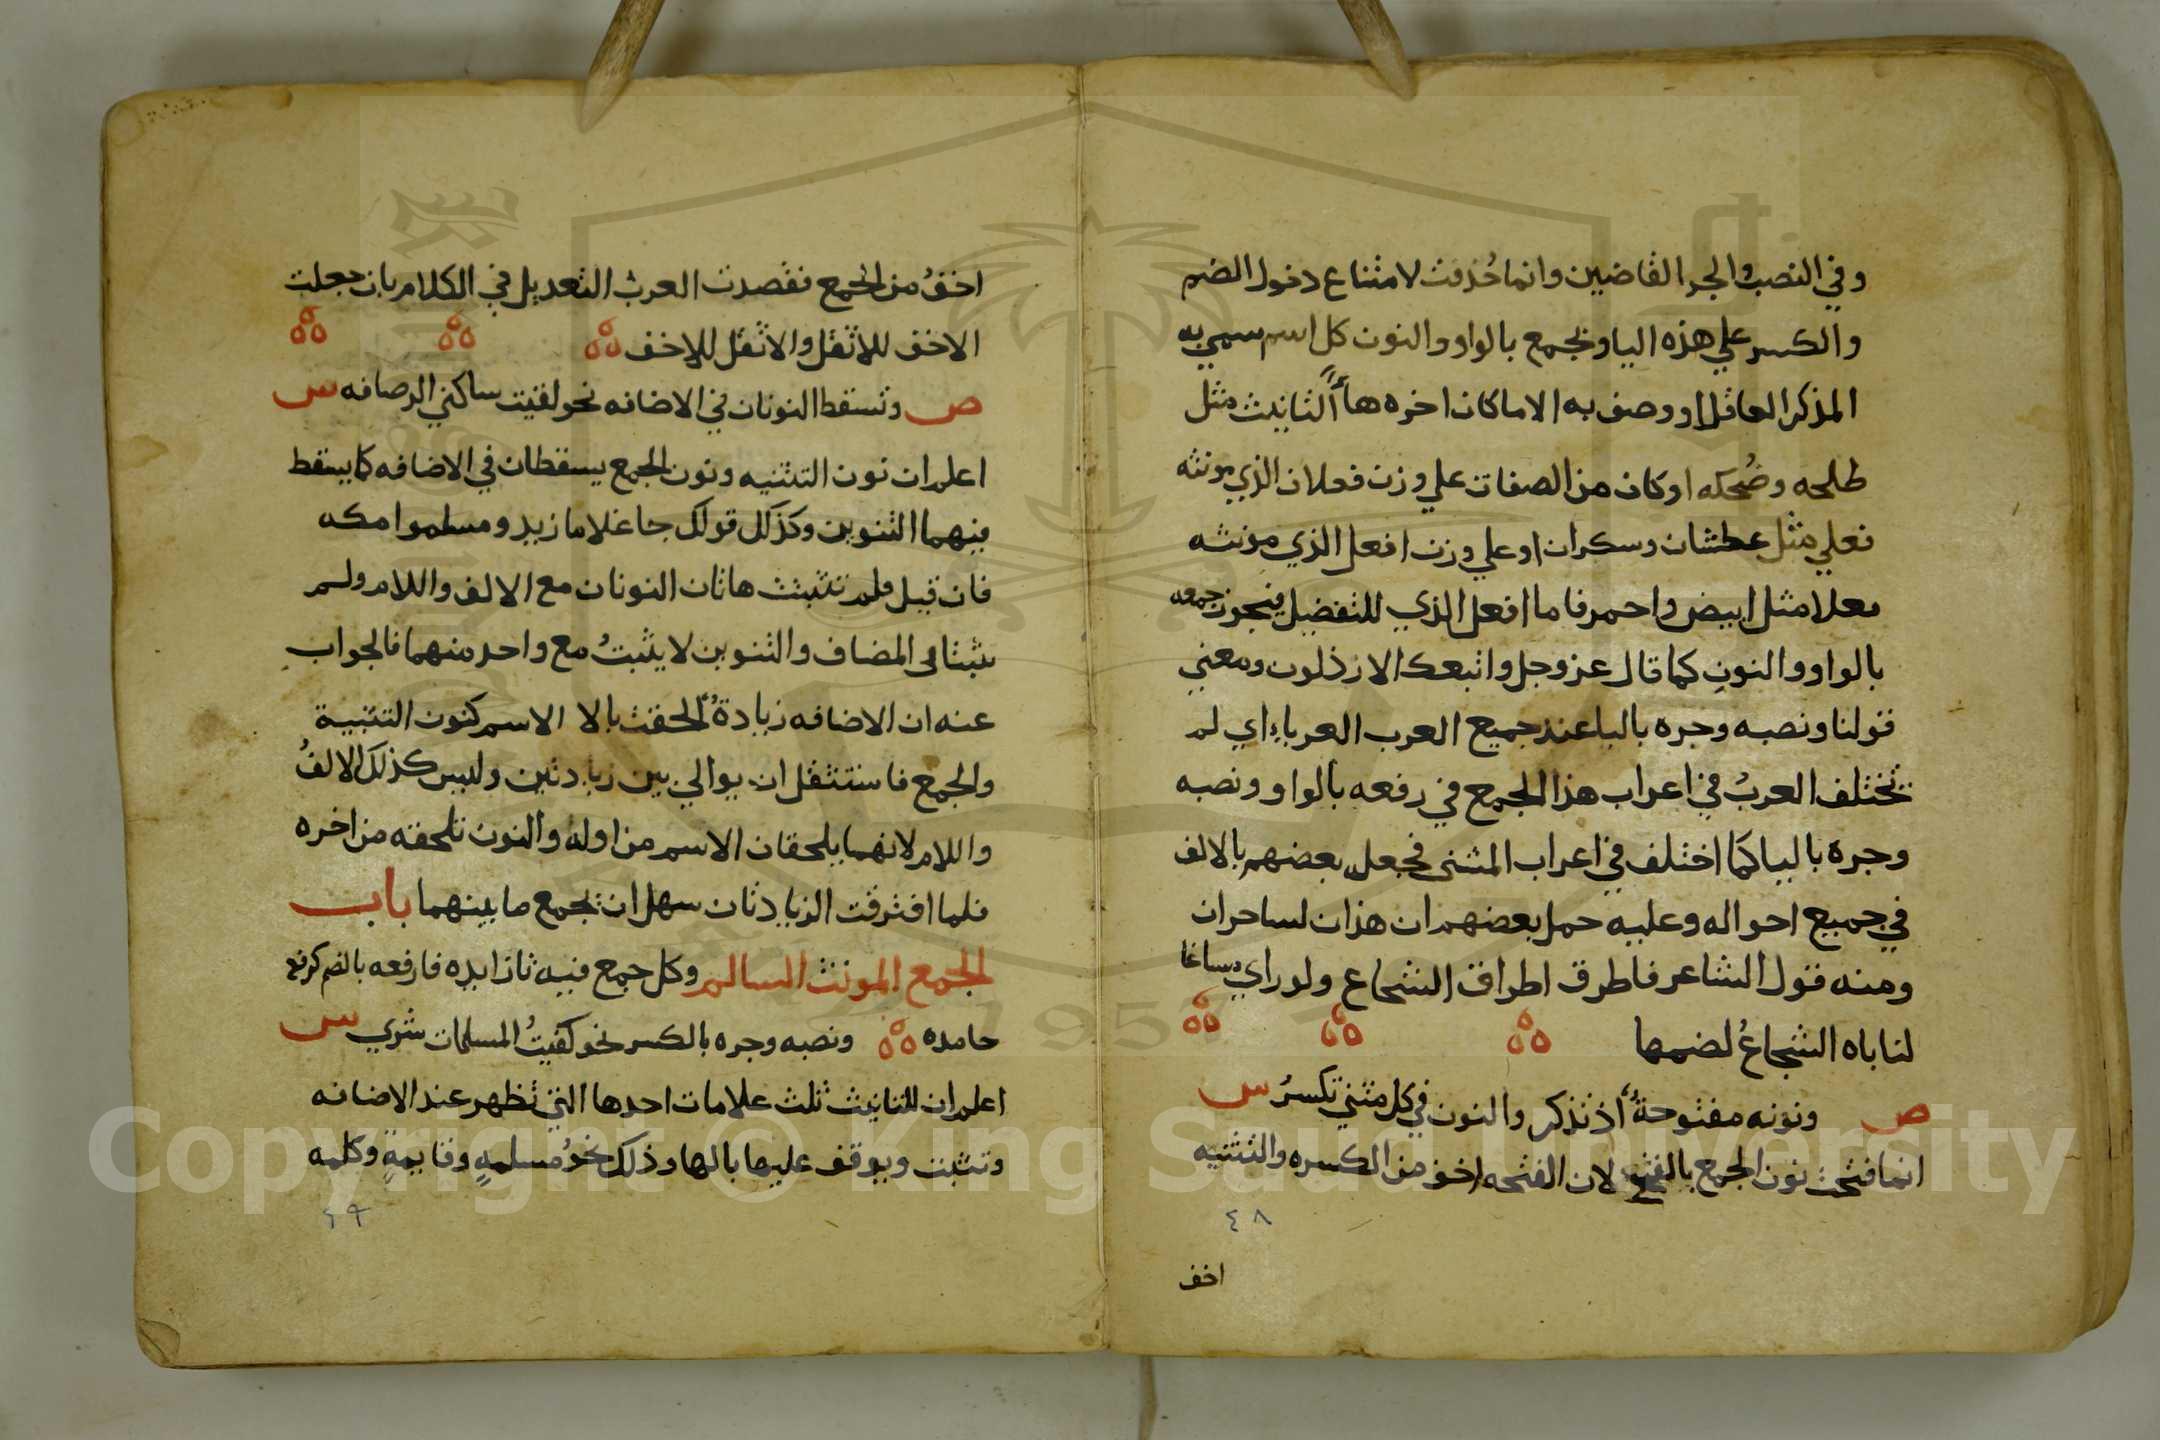 وفي النصب والجر القاضين وانما حُذفت لامتناع دخول الضم
والكسر علي هذه اليا وتجمع بالواو والنون كل اسم سمي به
المذكر العاقل او وصف به الا ما كان اخره هاأ التانيث مثل
طلحه وضُحكه او كان من الصفات علي وزن فعلان الذي مونثه
فعلي مثل عطشان وسكران او علي وزن افعل الذي مونثه
فعلا مثل ابيض واحمر فاما افعل الذي للتفضيل فيجوز جمعه
بالواو والنون كما قال عز وجل واتبعك الارذلون ومعني
قولنا ونصبه وجره باليا عند جميع العرب العرباء اي لم
تختلف العربُ في اعراب هذا الجمع في رفعه بالواو ونصبه
وجره باليا كما اختلف في اعراب المثنى فجعل بعضهم بالالف
في جميع احواله وعليه حمل بعضهم ان هذان لساحران
ومنه قول الشاعر فاطرق اطراق الشجاع ولو راي مساغا
لناباه الشجاعُ لضمما
ص ونونه مفتوحةٌ اذ تذكر والنون في كل مثني تكسرُ س
انما فتحت نون الجمع بالفتح لان الفتحه اخف من الكسره والتثنيه
٤٨
اخف
اخفُ من الجمع فقصدت العرب التعديل في الكلام بان جعلت
الاخف للاثقل والاثقل للاخف
ص وتسقط النونان في الاضافه نحو لقيت ساكني الرصافه س
اعلم ان نون التثنيه ونون الجمع يسقطان في الاضافه كما يسقط
منهما التنوين وكذلك قولك جا غلاما زيد ومسلموا مكه
فان قيل فلم تثبت هاتان النونان مع الالف واللام ولم
يثبتا في المضاف والتنوين لا يثبتُ مع واحد منهما فالجواب
عنه ان الاضافه زيادةٌ الحقت بالا الاسم كنون التثنية
والجمع فاستثقل ان يوالي بين زيادتين وليس كذلك الالفُ
واللام لانهما يلحقان الاسم من اوله والنون تلحقه من اخره
فلما افترقت الزيادتان سهل ان تجمع ما بينهما باب
الجمع المونث السالم وكل جمع فيه تا زايده فارفعه بالضم كرفع
حامده ونصبه وجره بالكسر نحو كفيتُ المسلمات شري س
اعلم ان للتانيث ثلث علامات احدها التي تظهر عند الاضافه
وتثبت ويوقف عليها بالها وذلك نحوُ مسلمهٍ وقايمةٍ وكلمه
٤٩
Copyright © King Saud University
1957